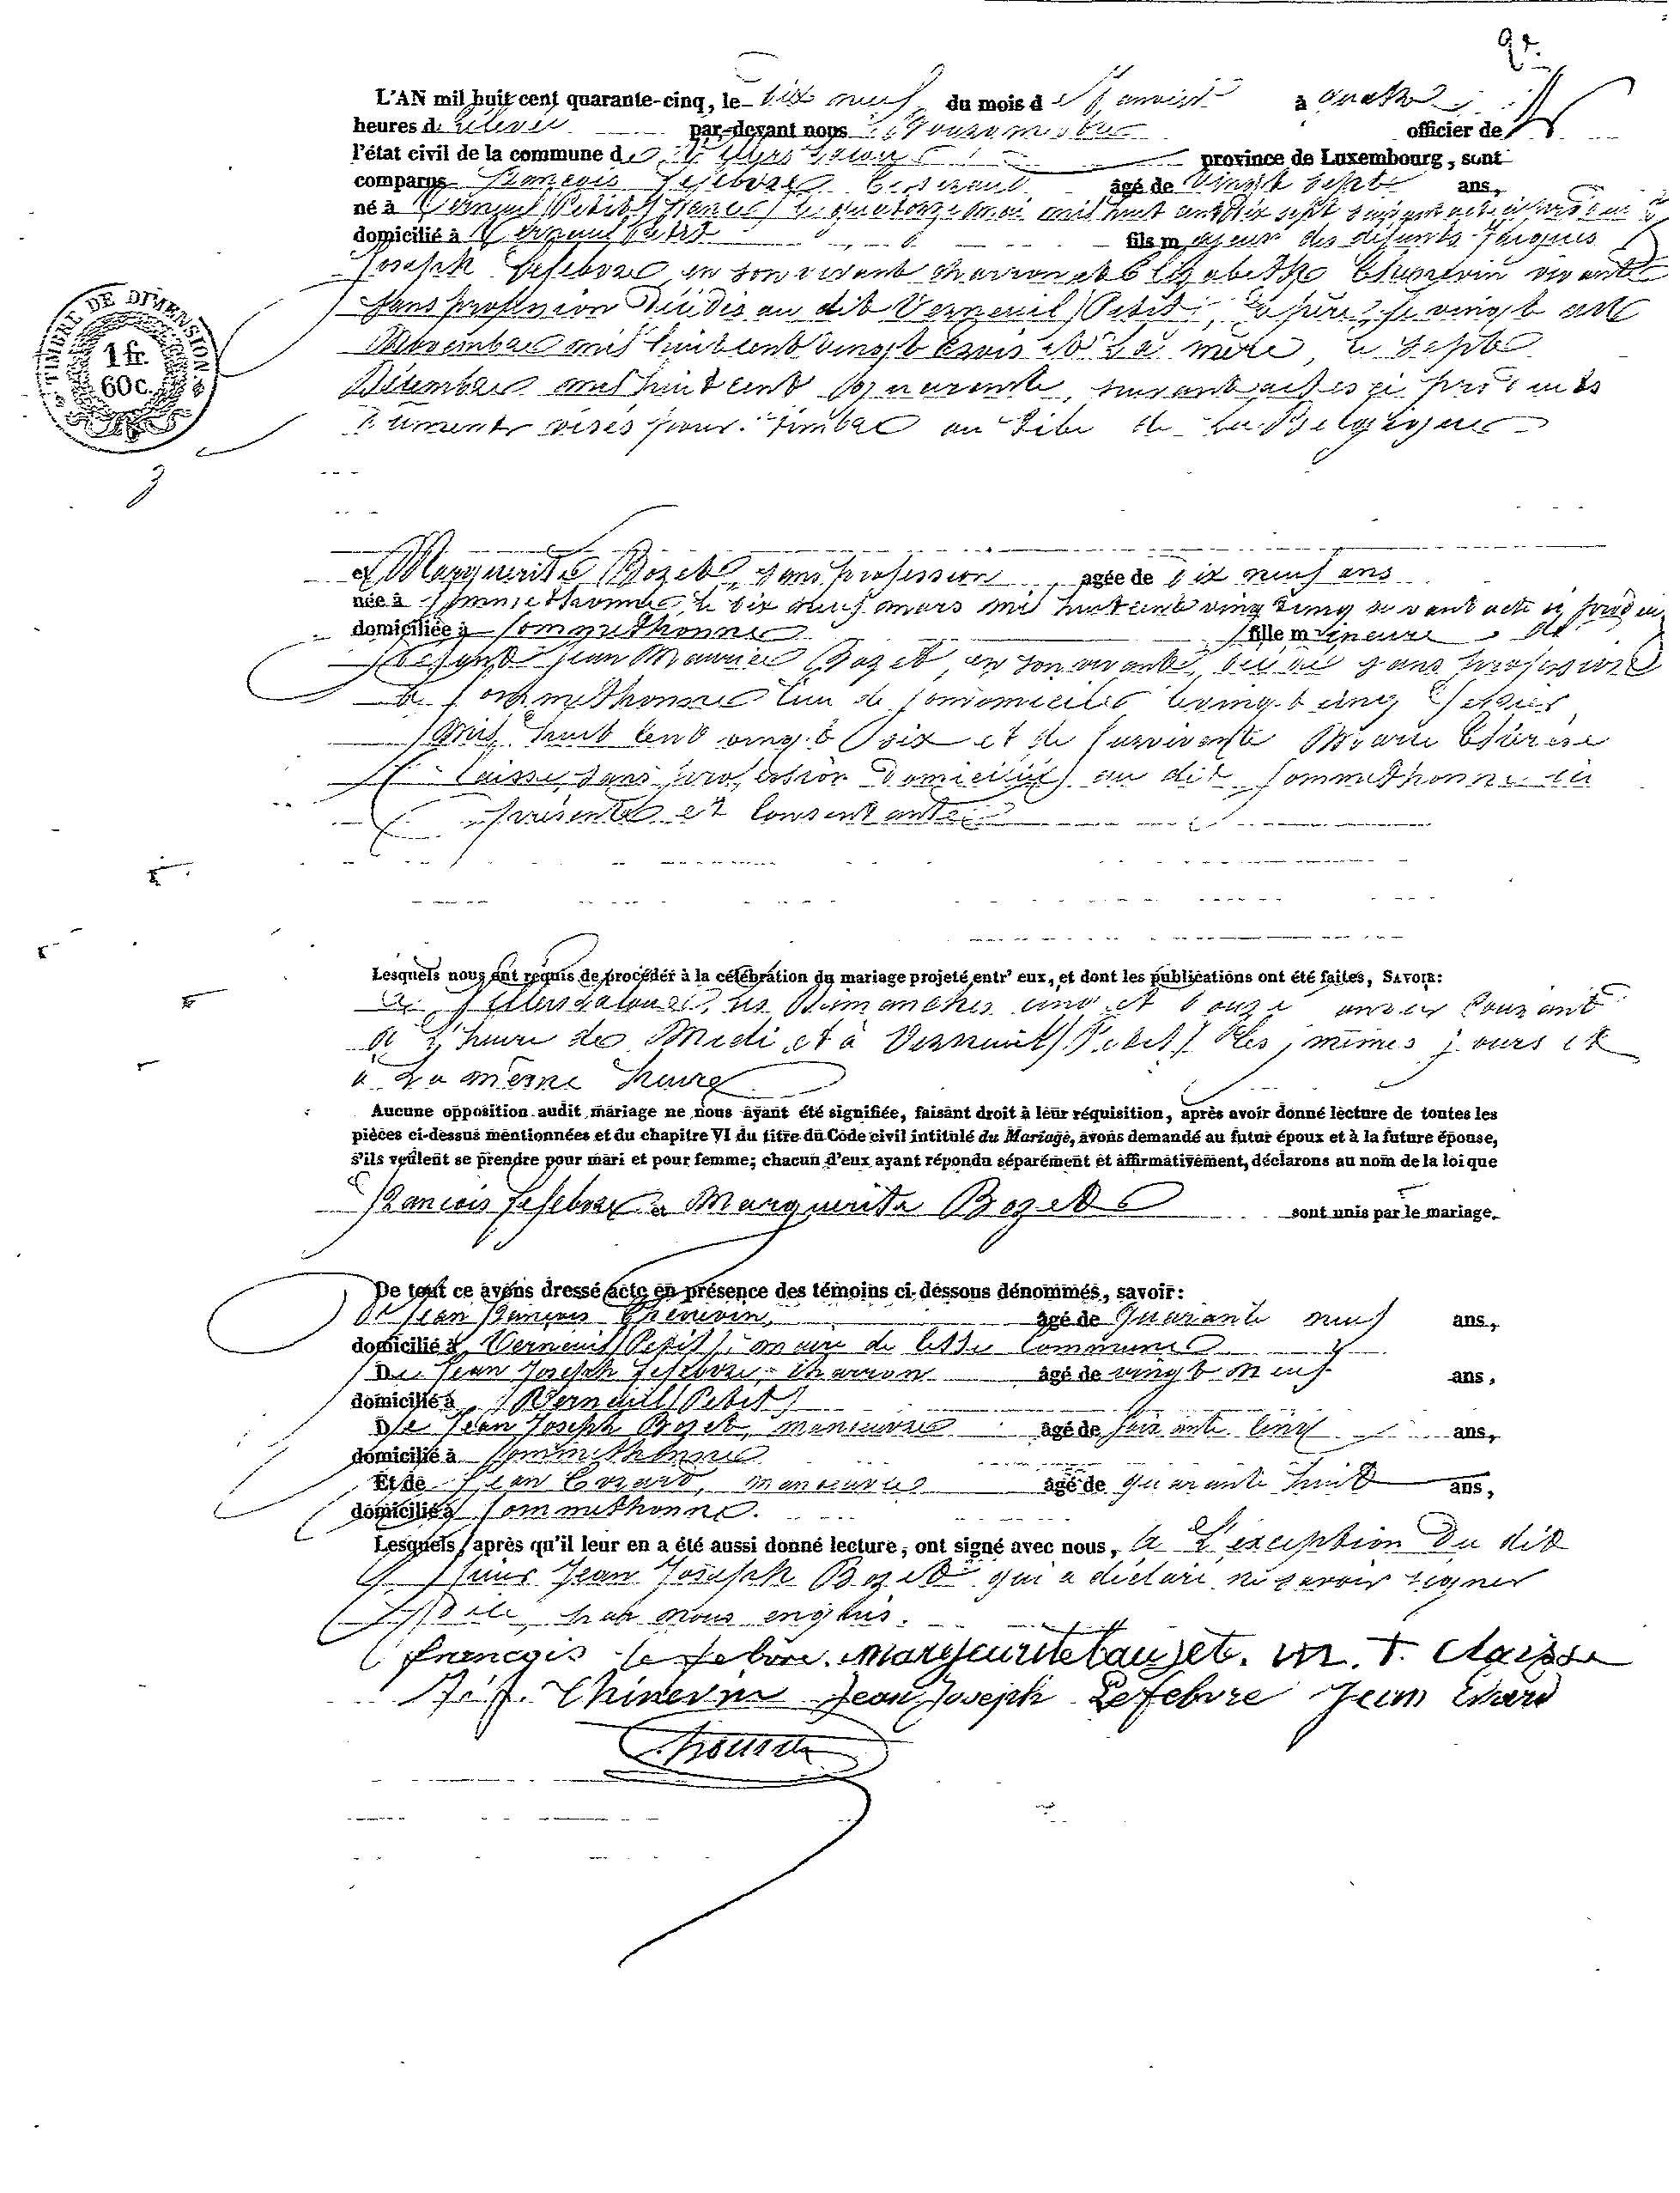 L'AN mil huit cent quarante-cinq, le dix neuf du mois de Janvier à quatre
heures de relevée par-devant nous Bourgmestre officier de
l'état civil de la commune de Villers Laloue province de Luxembourg, sont
comparus François Lefebvre Tisserand âgé de vingt sept ans,
né à Verneuil (Petit) (France) le quatorze mai mil huit cent dix sept suivant acte ci produit
domicilié à Verneuil Petit fils majeur des défunts Jacques
Joseph Lefebvre en son vivant charron et Elizabeth Thienevin vivante
sans profession décédés au dit Verneuil (Petit), le père, le vingt sept
Novembre mil huit cent vingt trois et la mère, le sept
Décembre mil huit cent quarante, suivant actes ci produits
dûment visés pour timbre au de la Belgique
TIMBRE DE DIMENSION.
1 fr.
60 c.
et Marguerite Bozet, sans profession agée de dix neuf ans
née à Sommethonne le dix neuf mars mil huit cent vingt cinq suivant acte ci produit
domiciliée à Sommethonne fille mineure de
défunt Jean Maurice Bozet en son vivant, sans profession
à Sommethonne lieu de son domicile le vingt cinq Février
Mil huit cent vingt six et de survivante Marie Thérèse
Claisse, sans profession domiciliée au dit Sommethonne ici
présente et consentante
Lesquels nous ont requis de procéder à la célébration du mariage projeté entr' eux, et dont les publications ont été faites, SAVOIR:
à Villers Laloue, les Dimanches cinq et douze janvier courant
à l'heure de Midi et à Verneuil (Petit) les mêmes jours et
à la même heure
Aucune opposition audit mariage ne nous ayant été signifiée, faisant droit à leur réquisition, après avoir donné lecture de toutes les
pièces ci-dessus mentionnées et du chapitre VI du titre du Code civil intitulé du Mariage, avons demandé au futur époux et à la future épouse,
s'ils veulent se prendre pour mari et pour femme; chacun d'eux ayant répondu séparément et affirmativement, déclarons au nom de la loi que
François Lefebvre et Marguerite Bozet sont unis par le mariage.
De tout ce avons dressé acte en présence des témoins ci-dessous dénommés, savoir:
De Jean François Thienevin, âgé de quarante neuf ans,
domicilié à Verneuil (Petit), maire de cette Commune
De Jean Joseph Lefebvre, charron âgé de vingt neuf ans,
domicilié à Verneuil (Petit)
De Jean Joseph Bozet, manœuvre âgé de soixante cinq ans,
domicilié à Sommethonne
Et de Jean Evrard, manœuvre âgé de quarante huit ans,
domicilié à Sommethonne.
Lesquels, après qu'il leur en a été aussi donné lecture, ont signé avec nous, à l'exception du dit
Jean Joseph Bozet qui a déclaré ne savoir signer
de ce, par nous enquis.
françois lefebvre. Margueritebauzet. M. T. Claisse
J. f. Thinevin Jean Joseph Lefebvre Jean Evard